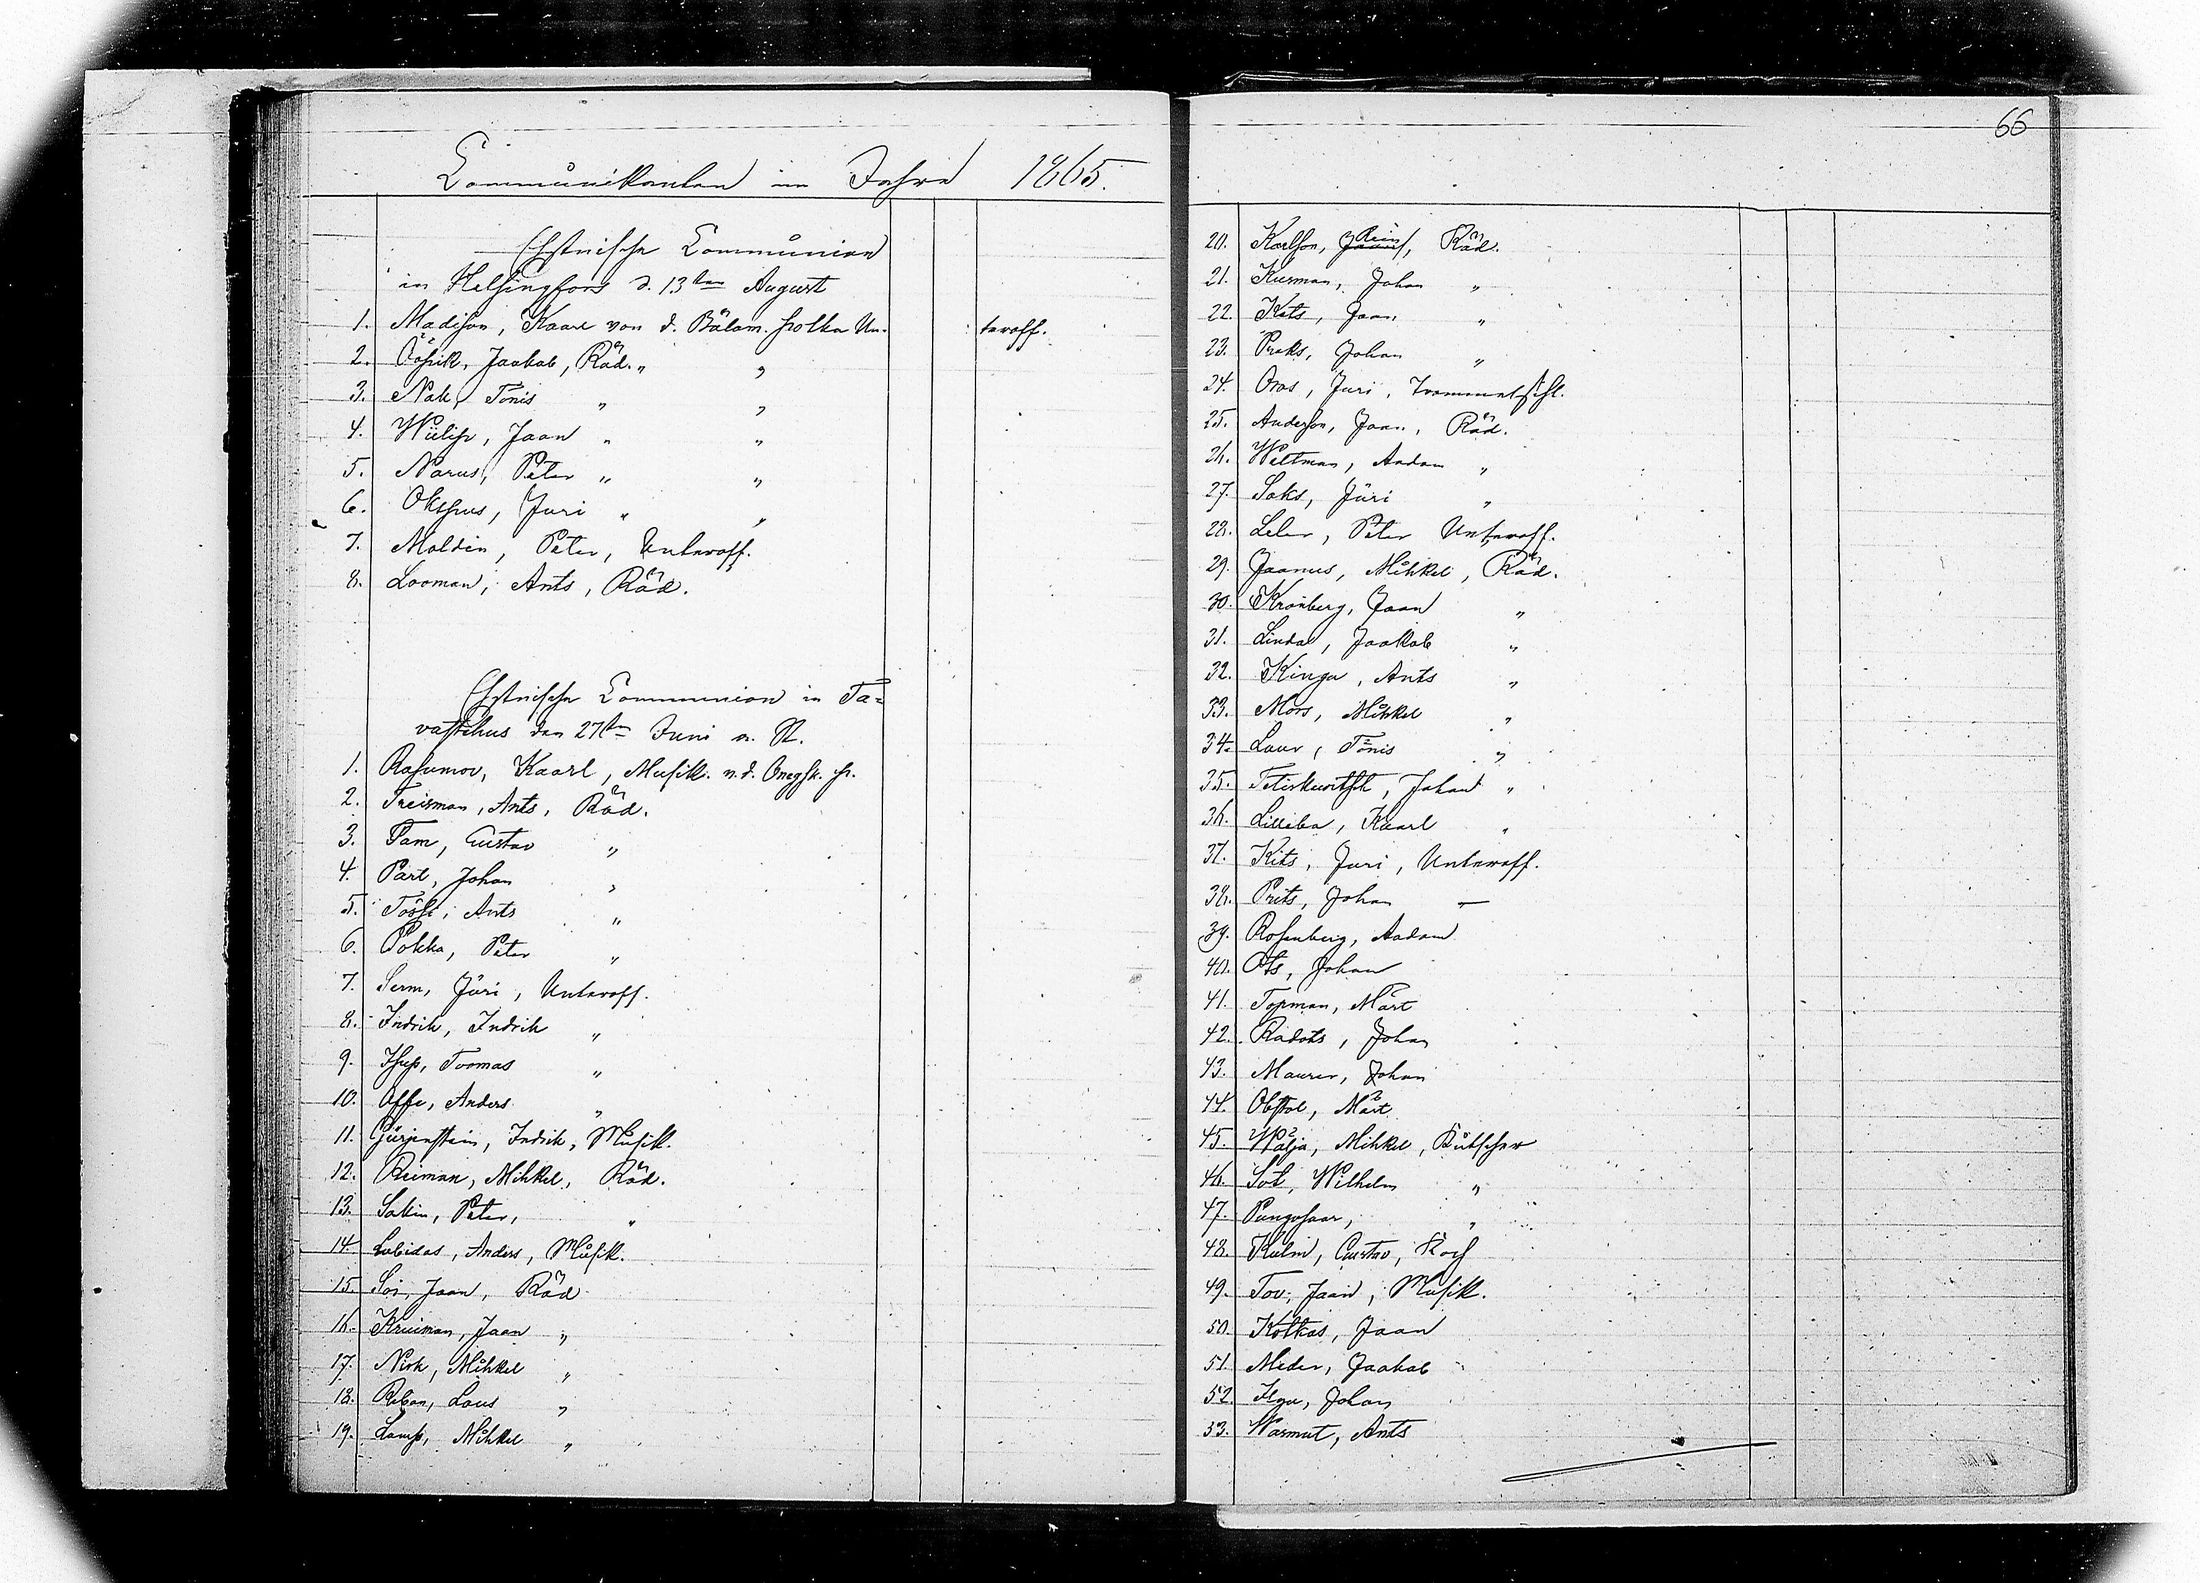 66
Communikanten im Jahre 1865.
Ehstnische Communion
in Helsingfors d. 13ten August
1. Madison, Kaarl von d. Bälom. polka Unteroff.
2. Jaakab, Räd. " "
3. Nak, Tönis " "
4. Wiilip, Jaan " "
5. Narus, Peter " "
6. Okspus, Juri " "
7. Moldin, Peter, Unteroff.
8. Looman, Ants, Räd.
Ehstnische Communion in Ta=
vastehus den 27ten Juni n. St.
1. Rasumov, Kaarl, Musik. v. d. Onegsk. p.
2. Treisman, Ants, Räd.
3. Tam, Gustav "
4. Pärt, Johan "
5. Ants "
6. Pokka, Peter "
7. Serm, Jüri, Unteroff.
8. Indrik, Indrik "
9. Toomas "
10. Affe, Anders "
11. Gürjenstein, Indrik, Musik.
12. Reiman, Mihkel, Räd.
13. Sakin, Peter, "
14. Lubidas, Anders, Musik.
15. Soi, Jaan, Räd
16. Kruiman, Jaan "
17. Nirk, Mihkel "
18. Reban, Laus "
19. Lamp, Mihkel "
20. Karlson, Rein, Räd.
21. Kusman, Johan "
22. Kats, Jaan "
23. Preks, Johan "
24. Oras, Juri, Trommelschl.
25. Anderson, Jaan, Räd.
26. Weltman, Aadam "
27. Saks, Jüri "
28. Leler, Peter Unteroff.
29. Jaanus, Mihkel, Räd.
30. Kronberg, Jaan "
31. Linda, Jaakab "
32. Kinga, Ants "
33. Mors, Mihkel "
34. Laur, Tönis "
35. Johan "
36. Lilleba, Kaarl "
37. Kits, Juri, Unteroff.
38. Prits, Johan —
39. Rosenberg, Aadam
40. Ots, Johan
41. Topman, Märt
42. Radots, Johan
43. Maurer, Johan
44. Obstol, Märt
45. Wälja, Mihkel, Kutscher
46. Sot, Wilhelm "
47. Pungosaar, "
48. Kulm, Gustav, Koch
49. Tov, Jaan, Musik.
50. Kotkas, Jaan
51. Meder, Jaakab
52. Ilga, Johan
53. Warmut, Ants